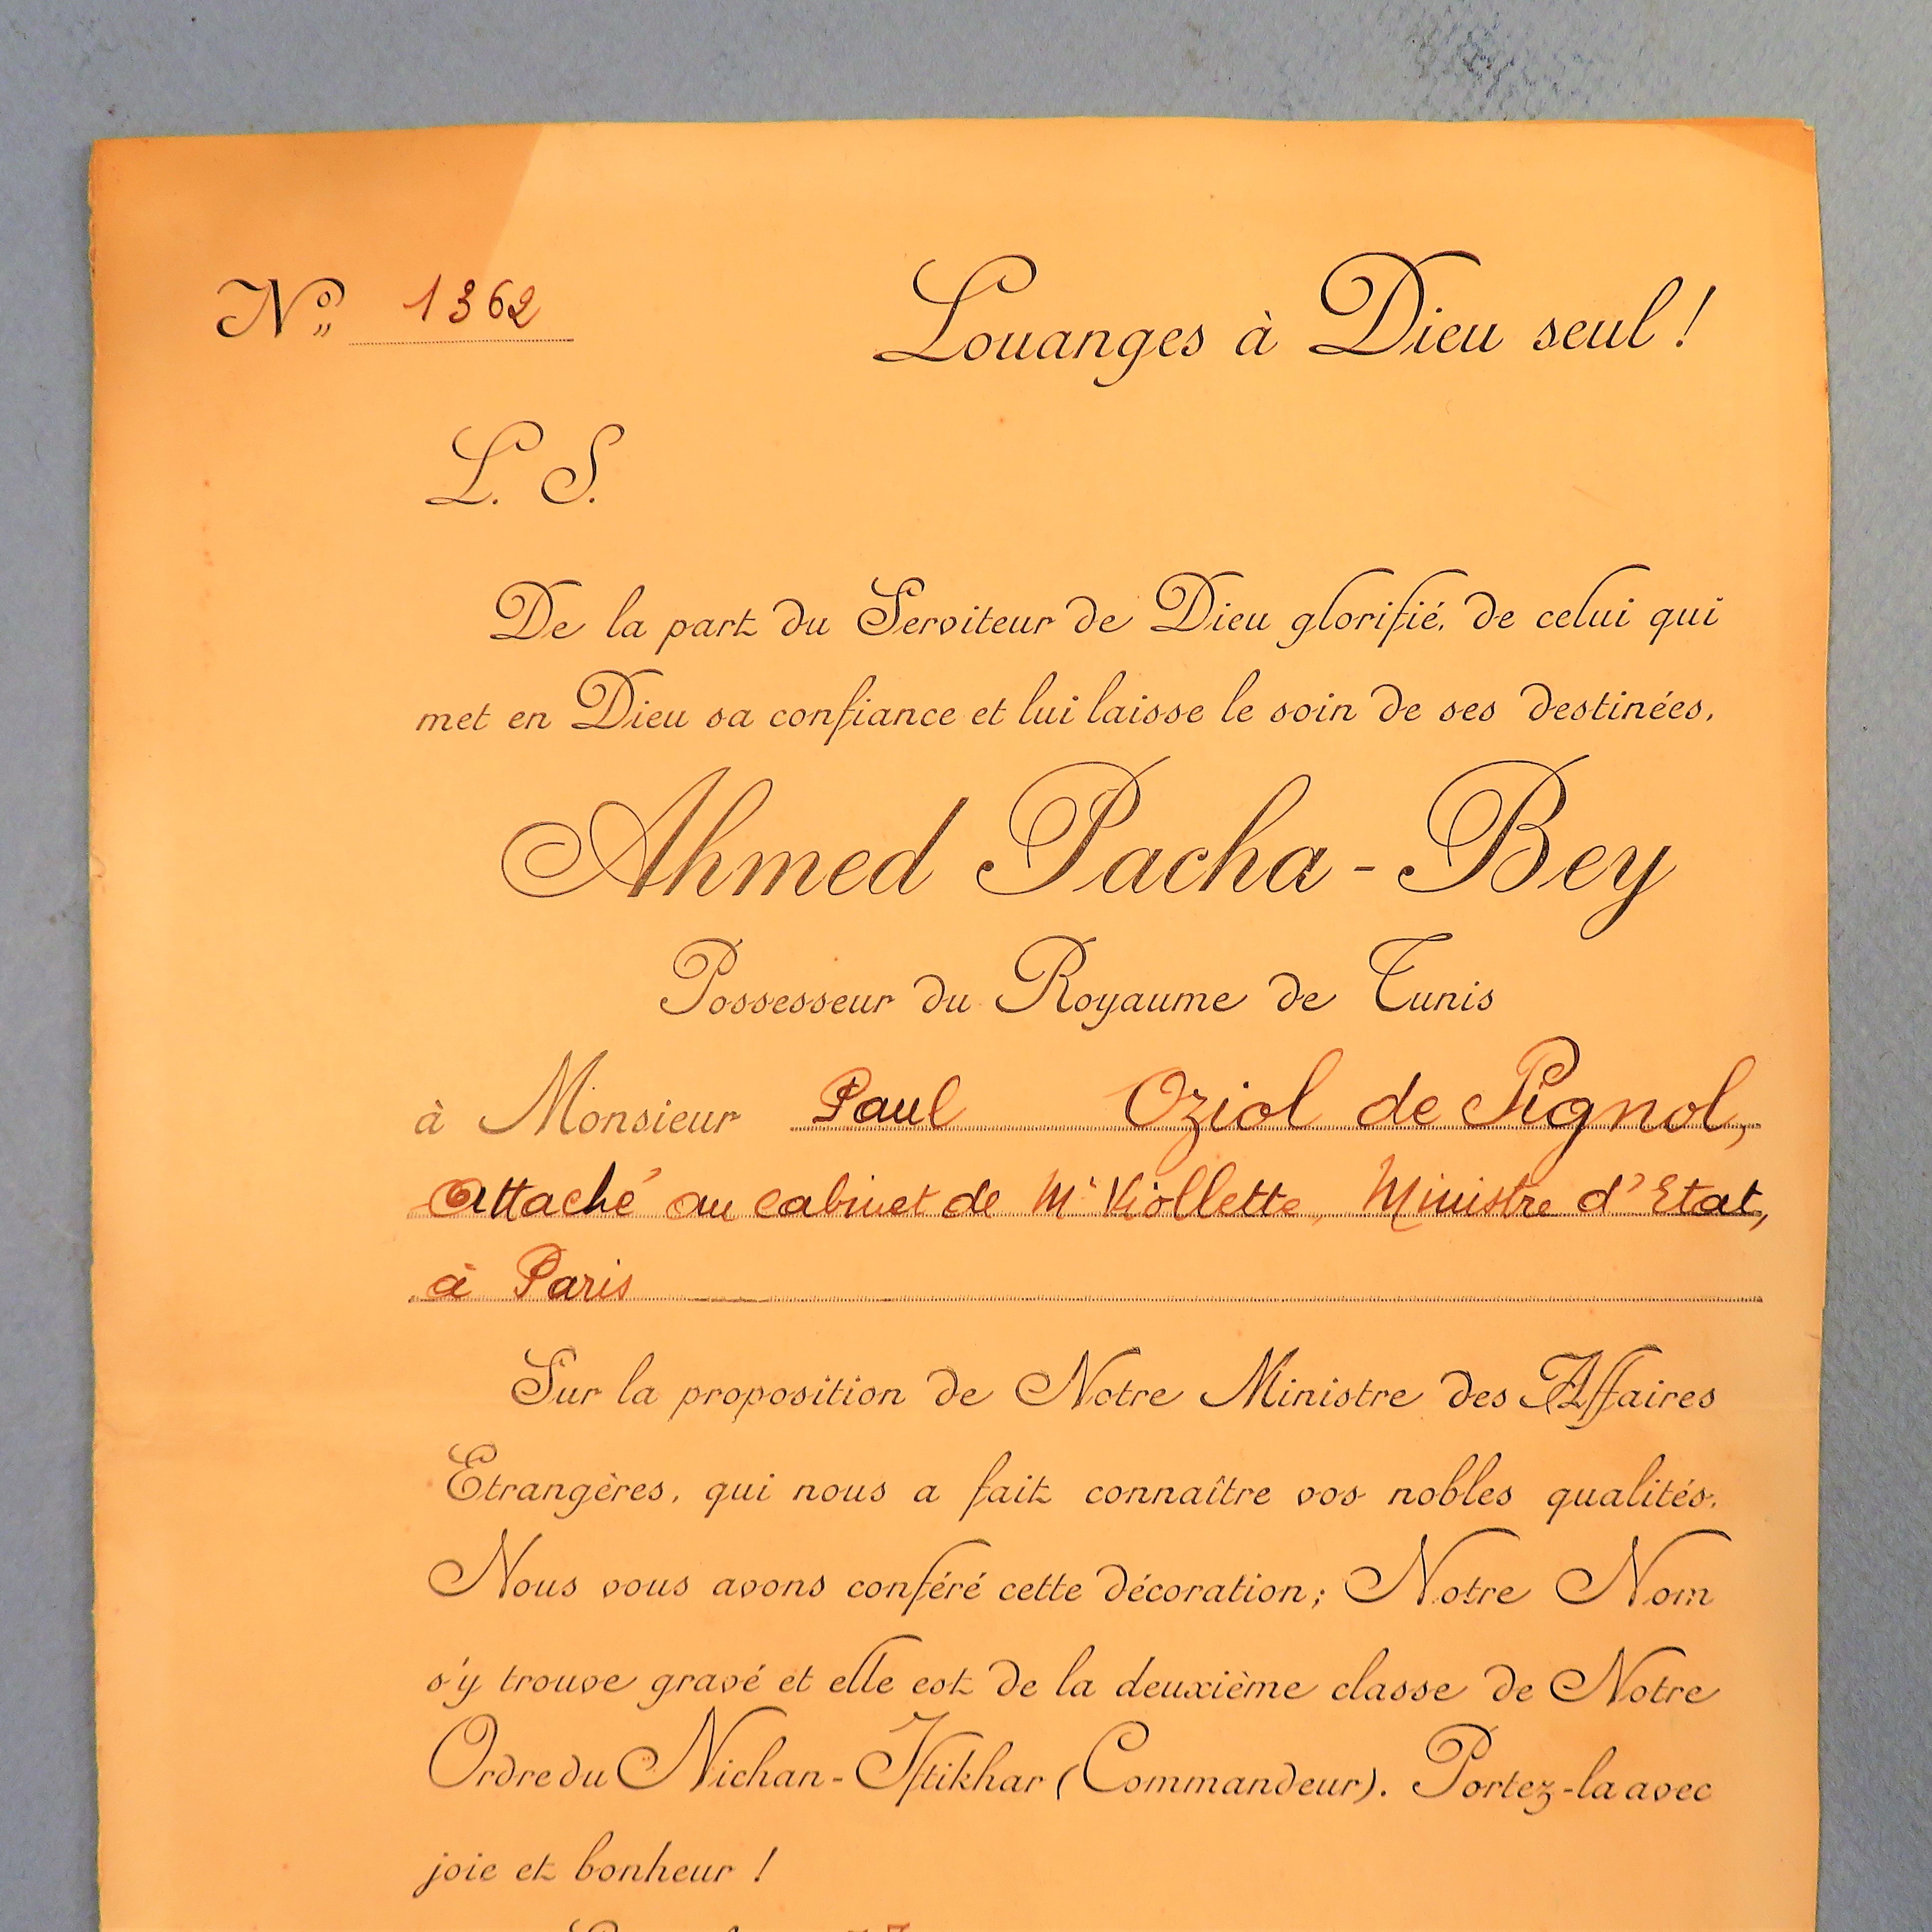 Nº 1362
Louanges à Dieu seul !
L. S.
De la part du Serviteur de Dieu glorifié, de celui qui
met en Dieu sa confiance et lui laisse le soin de ses destinées,
Ahmed Pacha - Bey
Possesseur du Royaume de Tunis
à Monsieur Paul Oziol de Pignol,
Attaché au cabinet de Mr Viollette, Ministre d'Etat,
à Paris
Sur la proposition de Notre Ministre des Affaires
Etrangères, qui nous a fait connaître vos nobles qualités,
Nous vous avons conféré cette décoration ; Notre Nom
s'y trouve gravé et elle est de la deuxième classe de Notre
Ordre du Nichan-Iftikhar (Commandeur). Portez-la avec
joie et bonheur !